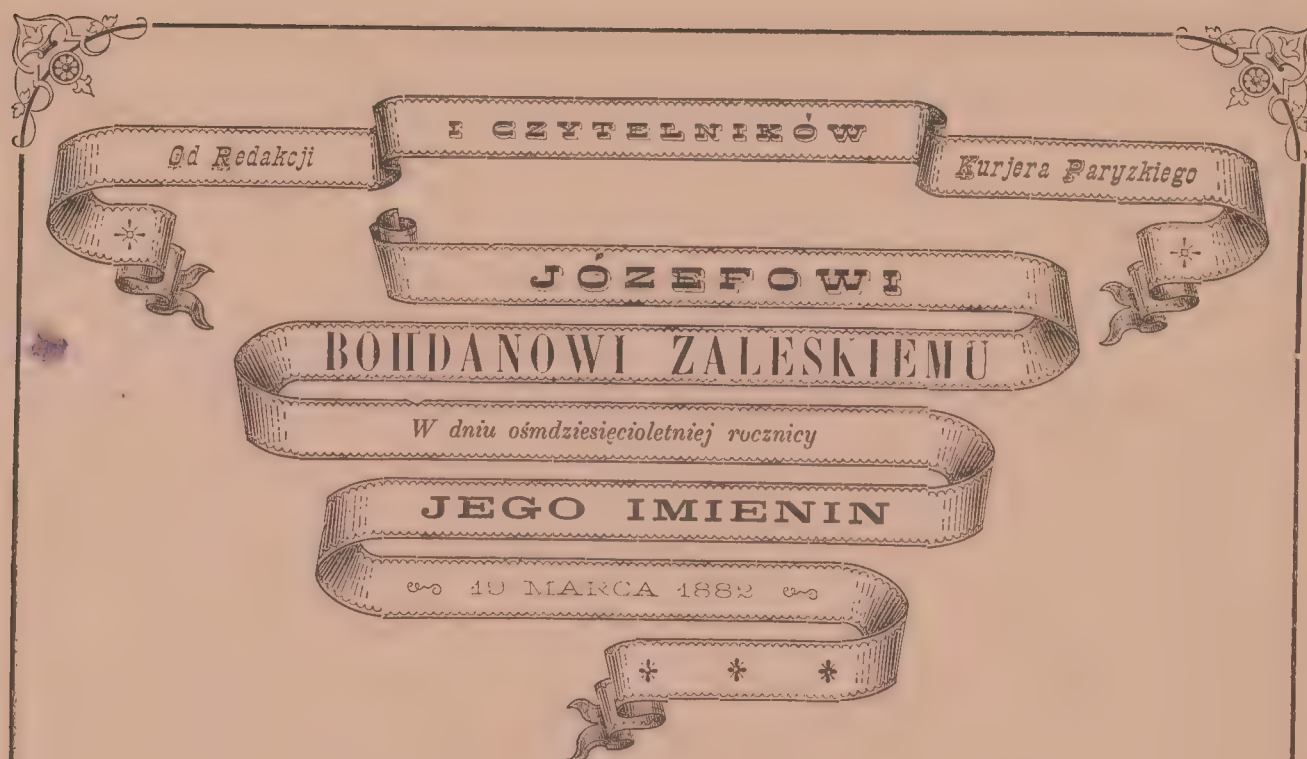 Od Redakcji
I CZYTELNIKÓW
Kurjera Paryzkiego
JÓZEFOWI
BOHDANOWI ZALESKIEMU
W dniu ośmdziesięcioletniej rocznicy
JEGO IMIENIN
19 MARCA 1882